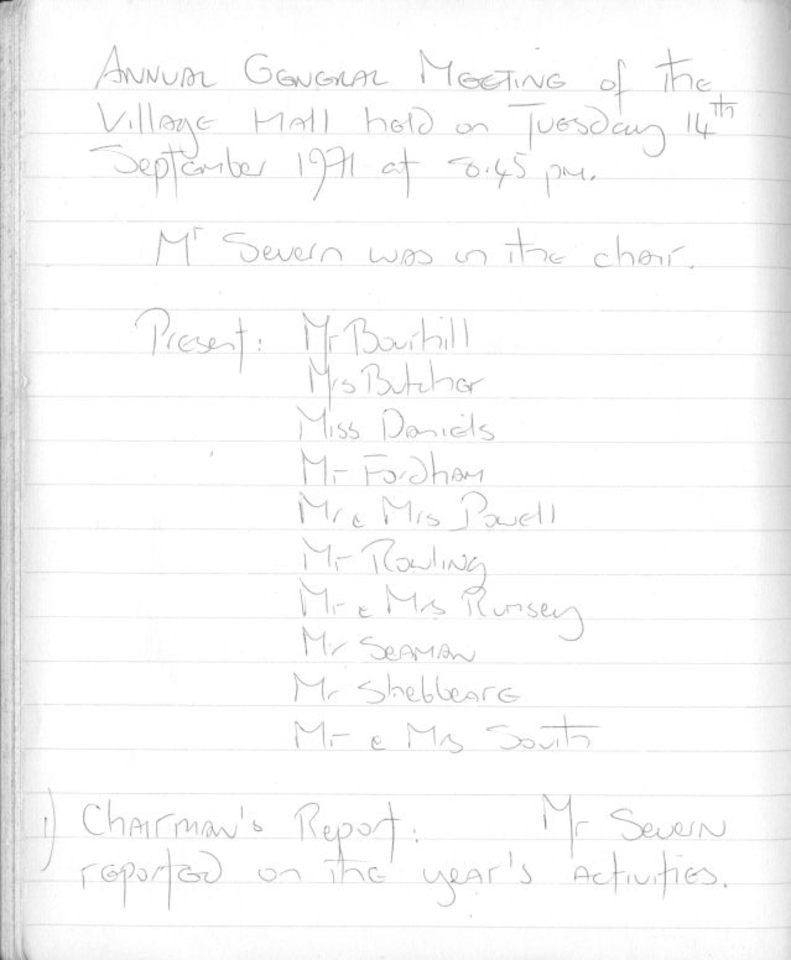 Annual General Meeting of the
Village Hall held on Tuesday 14th
September 1971 at 8.45 pm.
Mr Severn was in the chair.
Present: Mr Bourhill
Mrs Butcher
Miss Daniels
Mr Fordham
Mr & Mrs Powell
Mr Rowling
Mr & Mrs Rumsey
Mr Seaman
Mr Shebbeare
Mr & Mrs South
1) Chairman's Report: Mr Severn
reported on the year's activities.